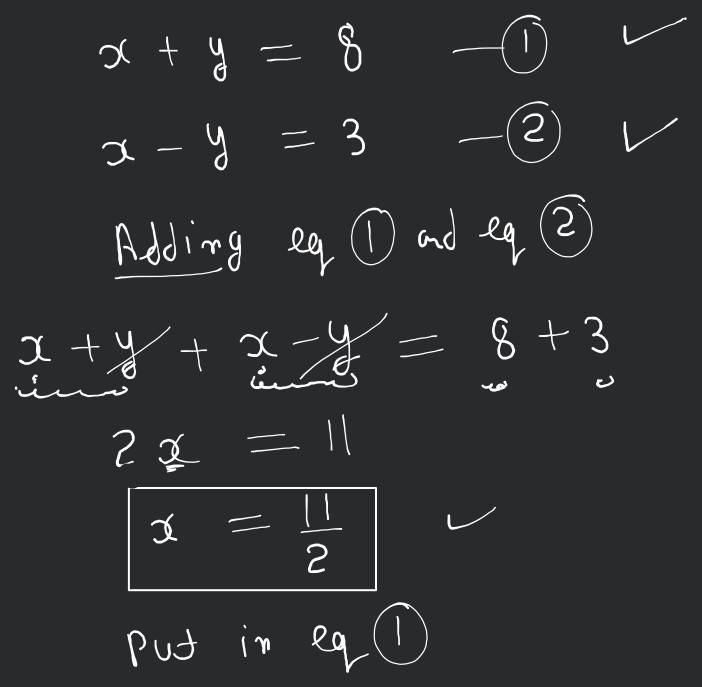 x + y = 8 — ①
x - y = 3 - ②
Adding eq ① and eq ②
x + y + x - y = 8 + 3
2x = 11
x = 11/2
Put in eq ①